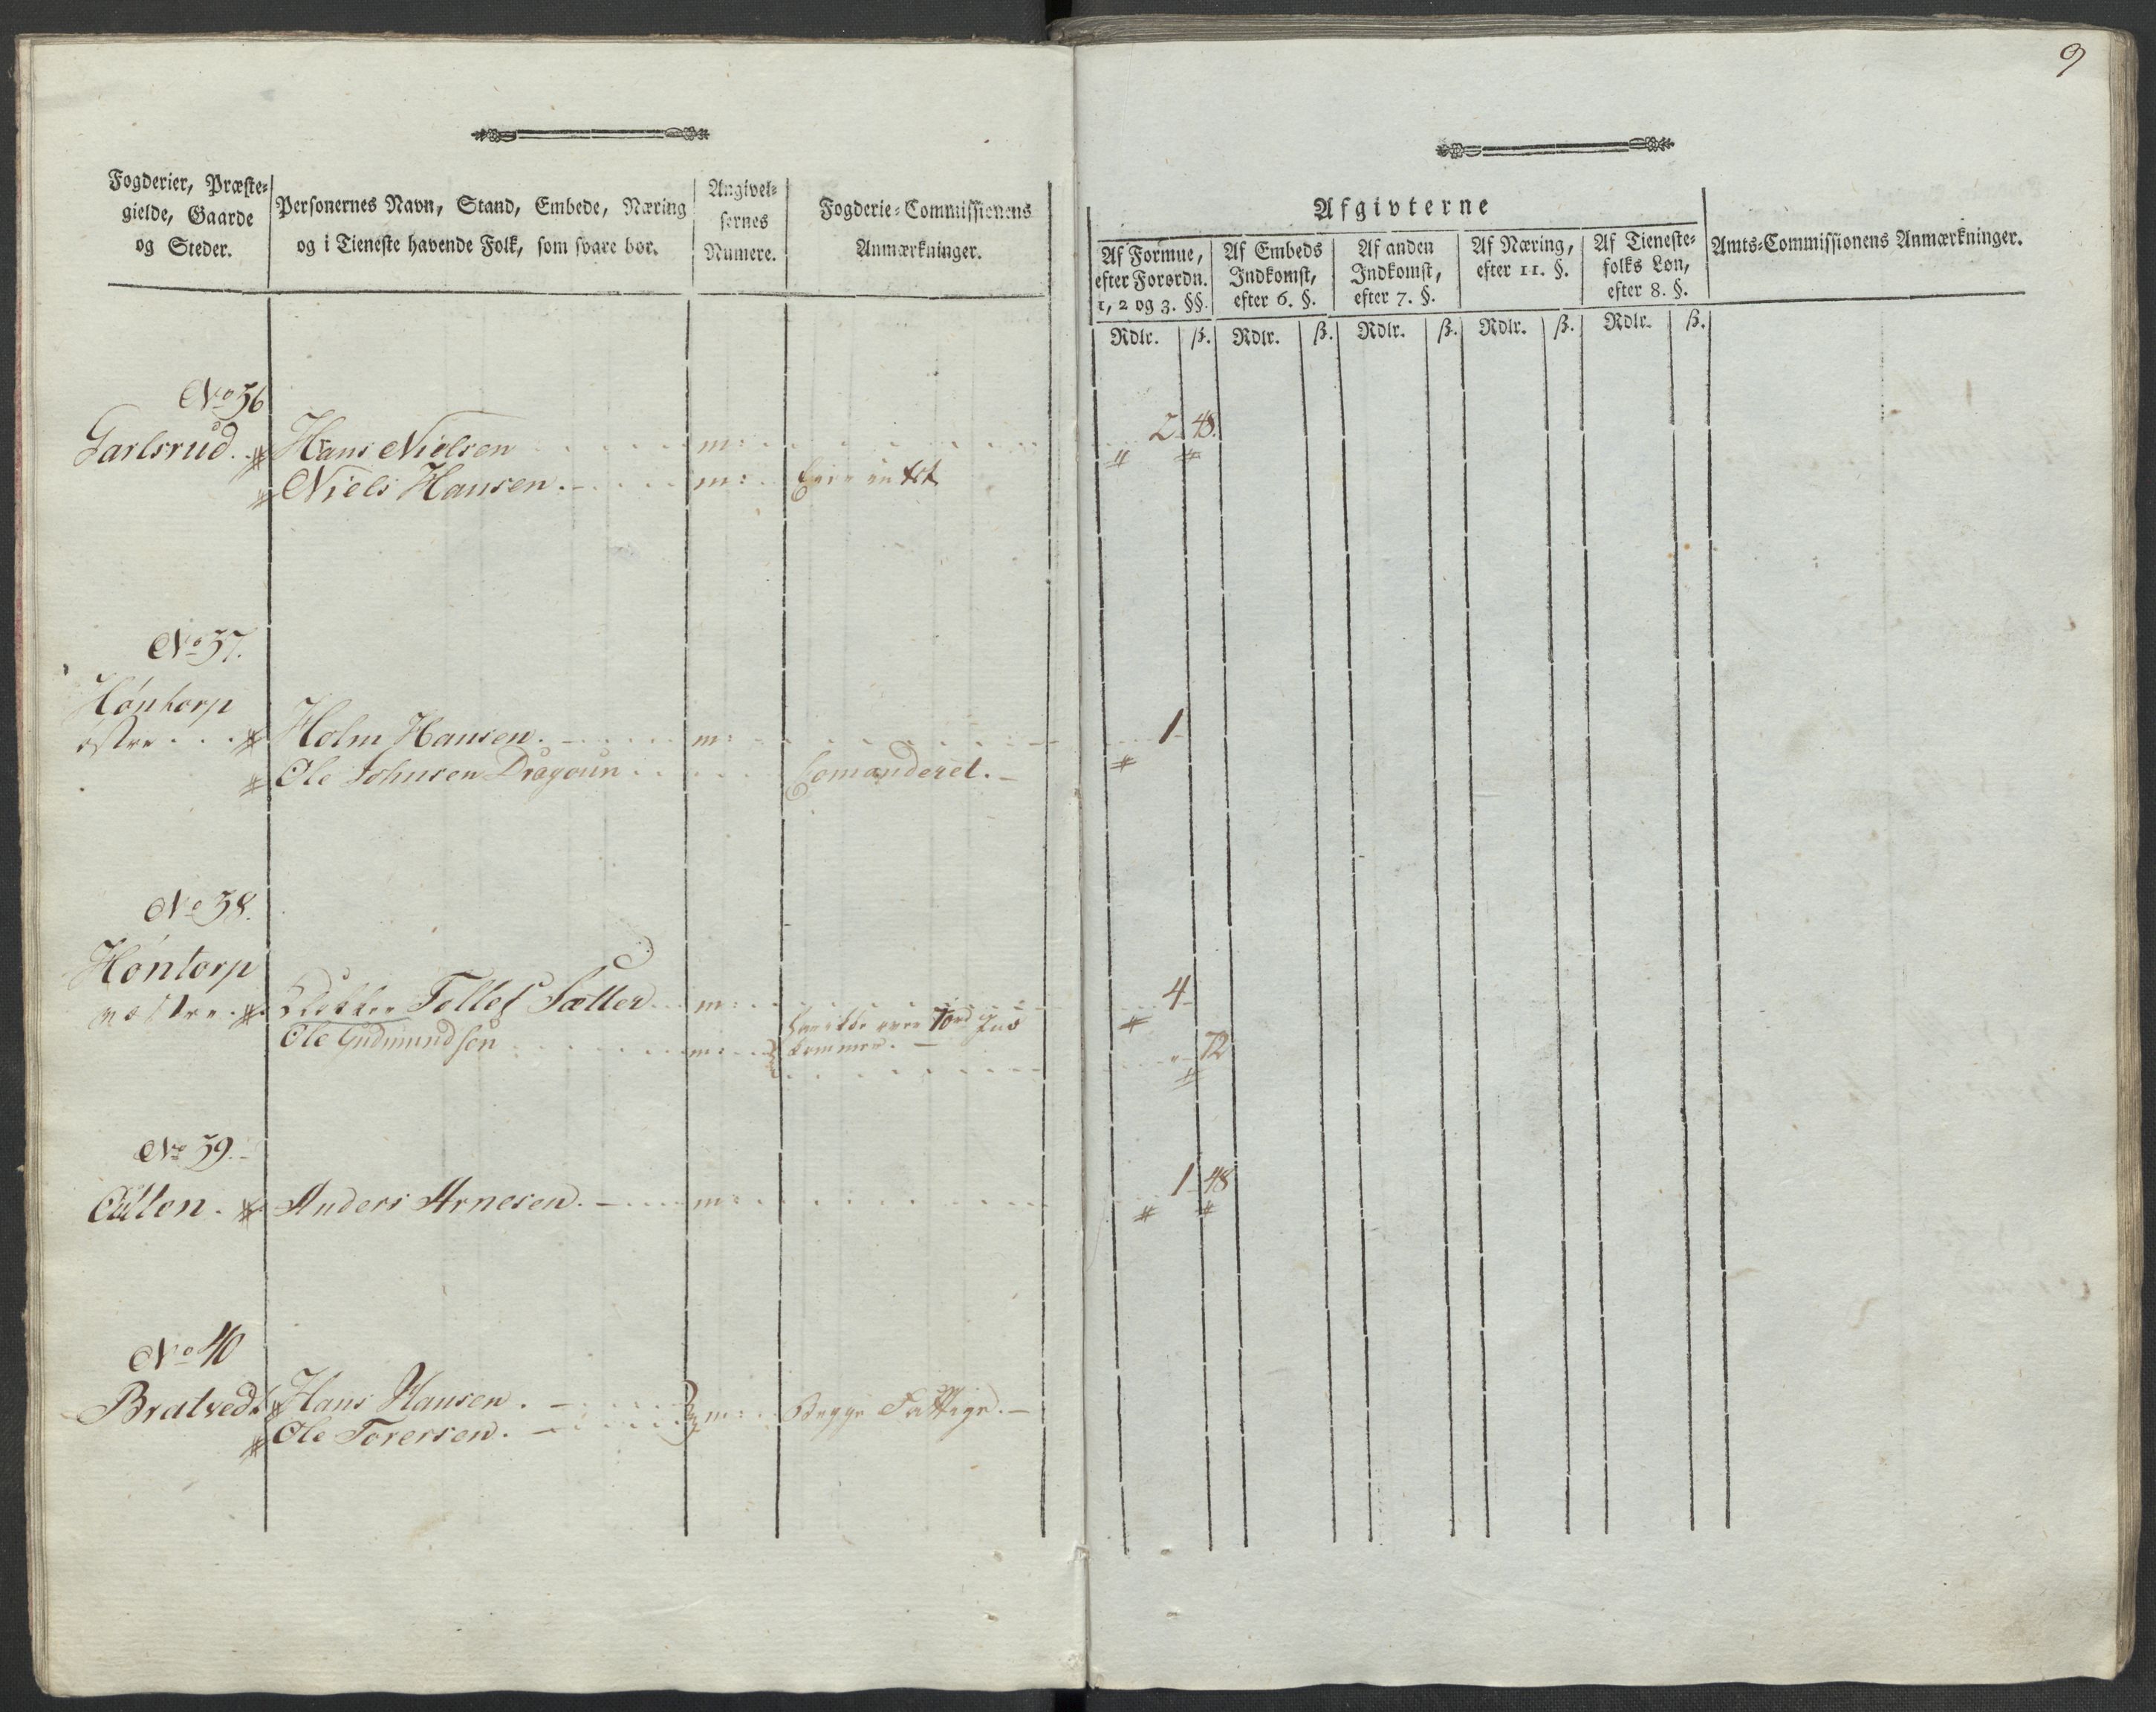 9
Fogderier, Præste-
gielde, Gaarde
og Steder.
Personernes Navn, Stand, Embede, Næring
og i Tieneste havende Folk, som svare bør.
Angivel-
sernes
Numere.
Fogderie-Commissionens
Anmærkninger.
Afgivterne
Af Formue,
efter Forordn.
1, 2 og 3. §§.
Af Embeds
Indkomst,
efter 6. §.
Af anden
Indkomst,
efter 7. §.
Af Næring,
efter 11. §.
Af Tieneste-
folks Løn,
efter 8. §.
Amts-Commissionens Anmærkninger.
Rdlr. ß. Rdlr. ß. Rdlr. ß. Rdlr. ß. Rdlr. ß.
No 36
Garlsrud. Hans Nielsen m: 2 48.
Niels Hansen. m: Eier intet
No 37.
Høntorp
østre Holm Hansen. m: 1
Ole Johnsen Dragoun Comanderet.
No 38.
Høntorp
væstre Tollef Sætter m: 4
Ole Gudmundsøn m: 72
No 39.
Anders Arnesen. m: 1 48
No 40
Bratved. Hans Hansen.
m: Begge Fattige.
Ole Torersen.